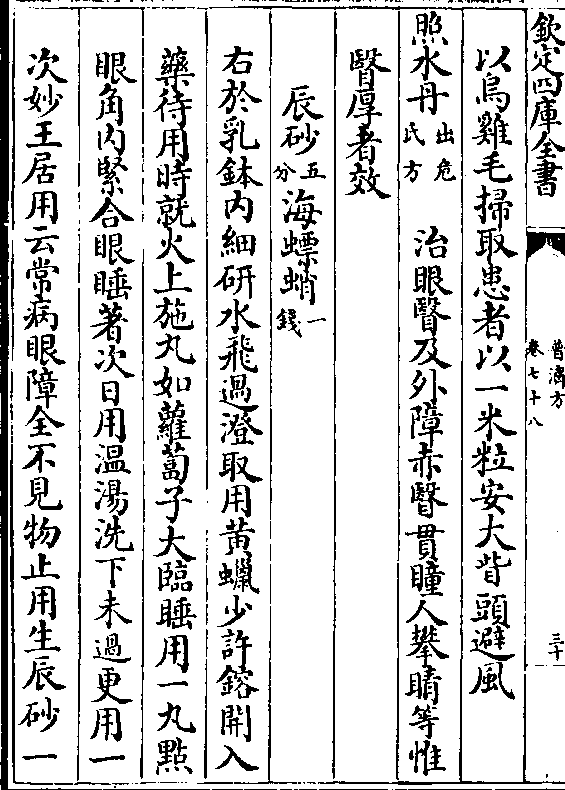 欽定四庫全書
普濟方
卷七十八
三十
以烏雞毛掃取患者以一米粒安大眥頭避風
照水丹出危氏方 治眼瞖及外障赤瞖貫瞳人攀睛等惟
瞖厚者效
辰砂五分 海螵蛸一錢
右於乳鉢内細研水飛過澄取用黄蠟少許鎔開入
藥待用時就火上施丸如蘿蔔子大臨睡用一丸點
眼角内緊合眼睡著次日用温湯洗下未過更用一
次妙王居用云常病眼障全不見物止用生辰砂一